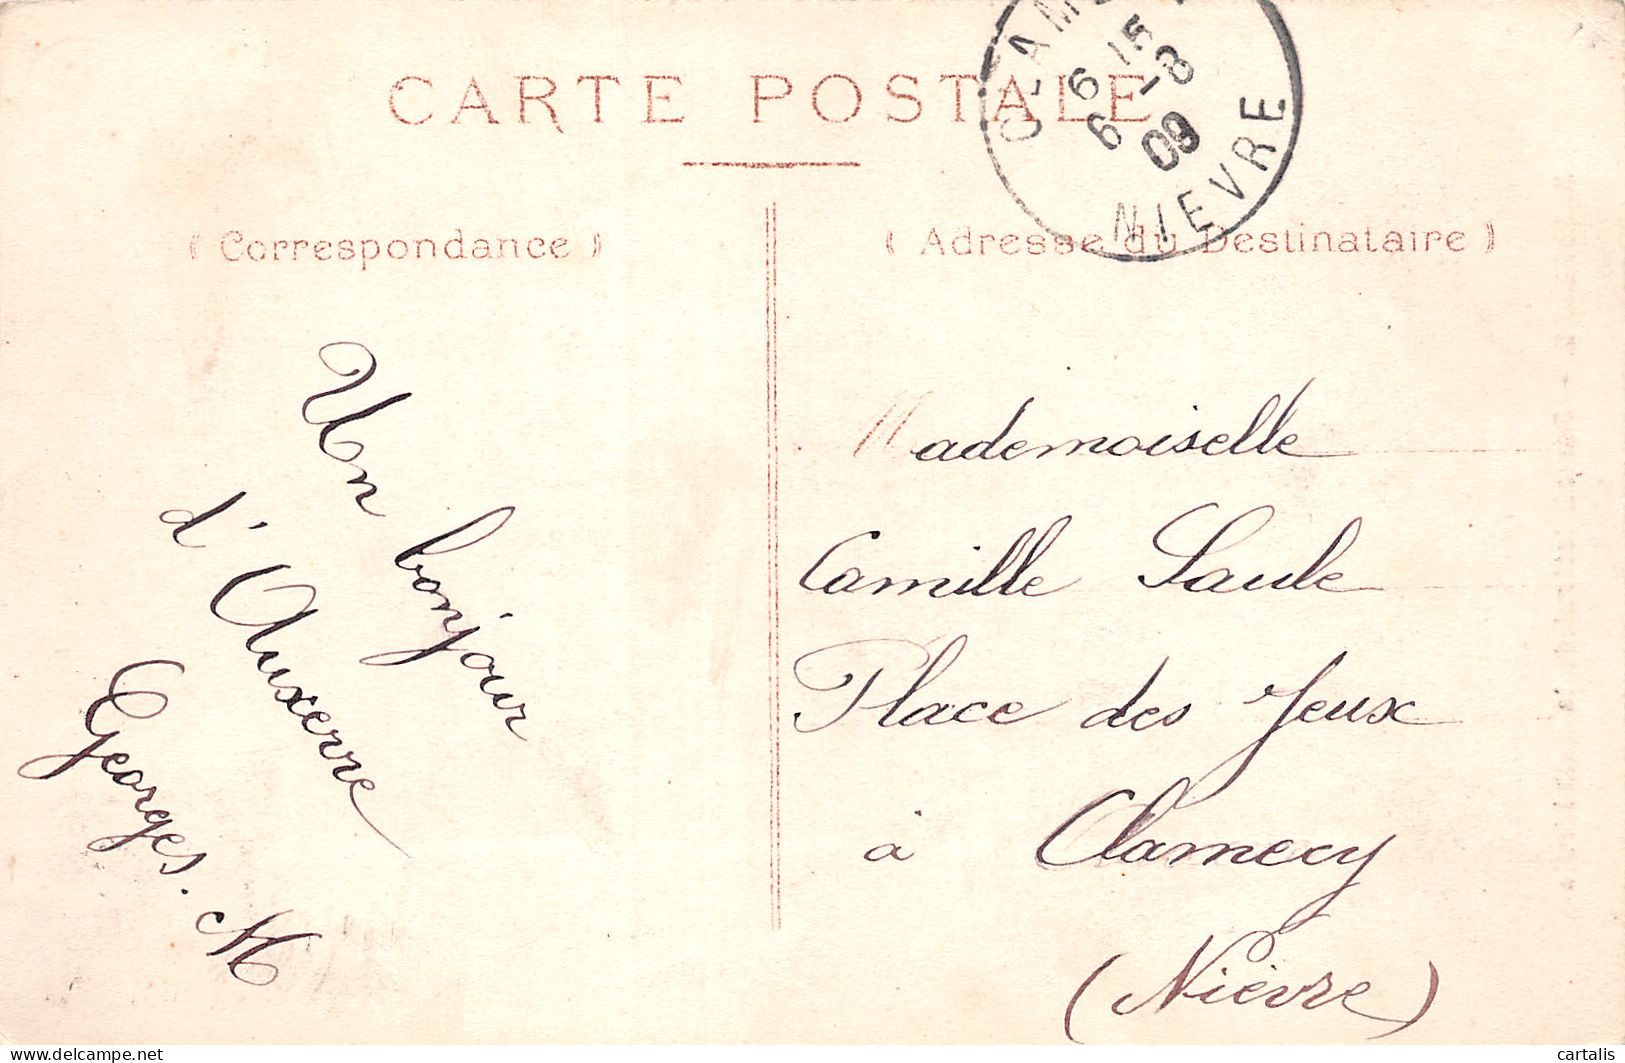 CARTE POSTALE
( Correspondance )
( Adresse du Destinataire )
6 15
6 -8
09
NIEVRE
Un bonjour
d'Auxerre
Georges. M
Mademoiselle
Camille Saule
Place des Jeux
à Clamecy
(Nièvre)
delcampe.net
cartalis